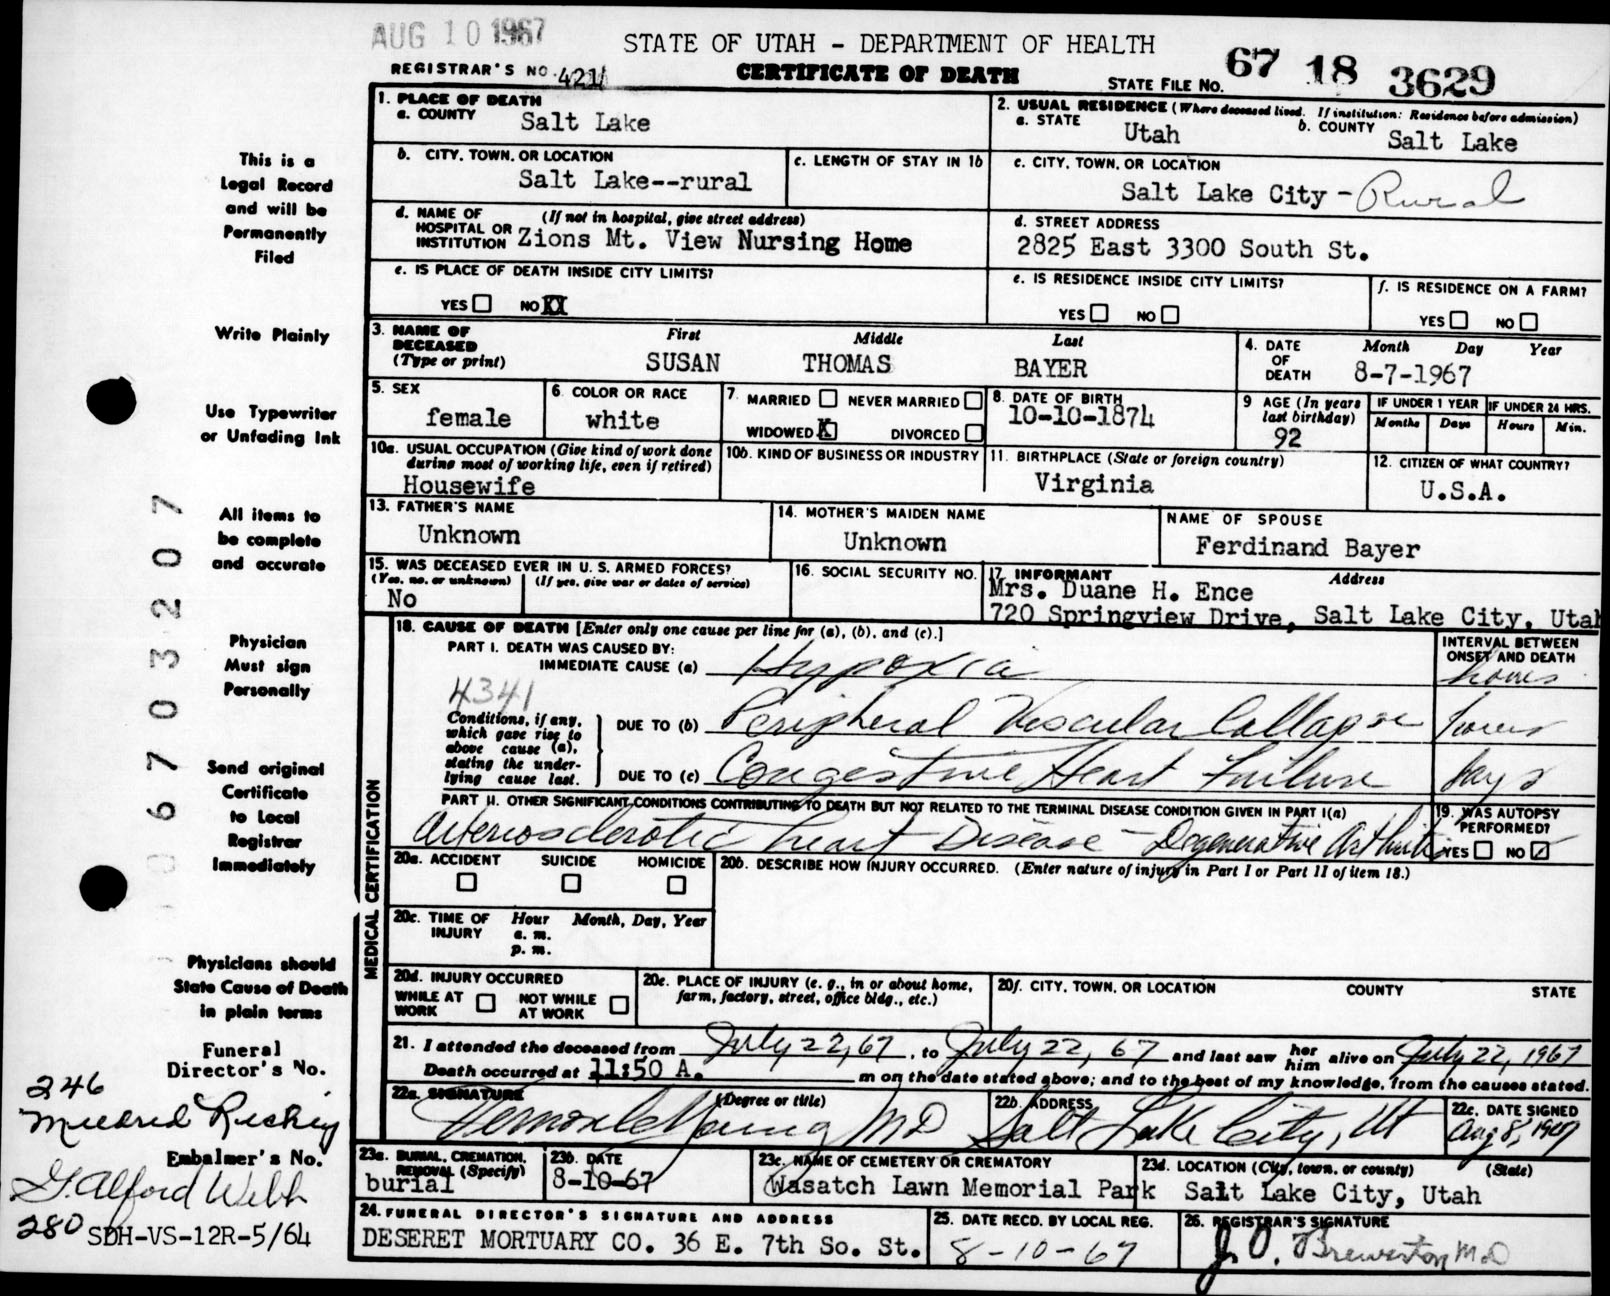 AUG 10 1967
STATE OF UTAH - DEPARTMENT OF HEALTH
REGISTRAR'S NO. 421
CERTIFICATE OF DEATH
STATE FILE NO. 67 18 3629
1. PLACE OF DEATH
a. COUNTY Salt Lake
2. USUAL RESIDENCE (Where deceased lived. If institution: Residence before admission)
a. STATE Utah b. COUNTY Salt Lake
b. CITY, TOWN, OR LOCATION
Salt Lake--rural
c. LENGTH OF STAY IN 1b
c. CITY, TOWN, OR LOCATION
Salt Lake City - Rural
d. NAME OF HOSPITAL OR INSTITUTION (If not in hospital, give street address)
Zions Mt. View Nursing Home
d. STREET ADDRESS
2825 East 3300 South St.
e. IS PLACE OF DEATH INSIDE CITY LIMITS?
YES NO XX
e. IS RESIDENCE INSIDE CITY LIMITS?
YES NO
f. IS RESIDENCE ON A FARM?
YES NO
3. NAME OF DECEASED (Type or print)
First Middle Last
SUSAN THOMAS BAYER
4. DATE OF DEATH
Month Day Year
8-7-1967
5. SEX
female
6. COLOR OR RACE
white
7. MARRIED NEVER MARRIED
WIDOWED X DIVORCED
8. DATE OF BIRTH
10-10-1874
9. AGE (In years last birthday)
92
IF UNDER 1 YEAR
Months Days
IF UNDER 24 HRS.
Hours Min.
10a. USUAL OCCUPATION (Give kind of work done during most of working life, even if retired)
Housewife
10b. KIND OF BUSINESS OR INDUSTRY
11. BIRTHPLACE (State or foreign country)
Virginia
12. CITIZEN OF WHAT COUNTRY?
U.S.A.
13. FATHER'S NAME
Unknown
14. MOTHER'S MAIDEN NAME
Unknown
NAME OF SPOUSE
Ferdinand Bayer
15. WAS DECEASED EVER IN U. S. ARMED FORCES?
(Yes, no, or unknown) (If yes, give war or dates of service)
No
16. SOCIAL SECURITY NO.
17. INFORMANT Address
Mrs. Duane H. Ence
720 Springview Drive, Salt Lake City, Utah
MEDICAL CERTIFICATION
18. CAUSE OF DEATH [Enter only one cause per line for (a), (b), and (c).]
PART I. DEATH WAS CAUSED BY:
IMMEDIATE CAUSE (a) Hypoxia
INTERVAL BETWEEN ONSET AND DEATH
hours
4341
Conditions, if any, which gave rise to above cause (a), stating the underlying cause last.
DUE TO (b) Peripheral Vascular Collapse hours
DUE TO (c) Congestive Heart Failure days
PART II. OTHER SIGNIFICANT CONDITIONS CONTRIBUTING TO DEATH BUT NOT RELATED TO THE TERMINAL DISEASE CONDITION GIVEN IN PART I(a)
Arteriosclerotic heart Disease - Degenerative Arthritis
19. WAS AUTOPSY PERFORMED?
YES NO
20a. ACCIDENT SUICIDE HOMICIDE
20b. DESCRIBE HOW INJURY OCCURRED. (Enter nature of injury in Part I or Part II of item 18.)
20c. TIME OF INJURY Hour Month, Day, Year
a. m.
p. m.
20d. INJURY OCCURRED
WHILE AT WORK NOT WHILE AT WORK
20e. PLACE OF INJURY (e. g., in or about home, farm, factory, street, office bldg., etc.)
20f. CITY, TOWN, OR LOCATION COUNTY STATE
21. I attended the deceased from July 22, 67, to July 22, 67 and last saw her him alive on July 22, 1967
Death occurred at 11:50 A. m on the date stated above; and to the best of my knowledge, from the causes stated.
22a. SIGNATURE (Degree or title)
MD
22b. ADDRESS
Salt Lake City, Ut
22c. DATE SIGNED
Aug 8, 1967
23a. BURIAL, CREMATION, REMOVAL (Specify)
burial
23b. DATE
8-10-67
23c. NAME OF CEMETERY OR CREMATORY
Wasatch Lawn Memorial Park
23d. LOCATION (City, town, or county) (State)
Salt Lake City, Utah
24. FUNERAL DIRECTOR'S SIGNATURE AND ADDRESS
DESERET MORTUARY CO. 36 E. 7th So. St.
25. DATE RECD. BY LOCAL REG.
8-10-67
26. REGISTRAR'S SIGNATURE
J. O. Brewerton MD
This is a
Legal Record
and will be
Permanently
Filed
Write Plainly
Use Typewriter
or Unfading Ink
All items to
be complete
and accurate
Physician
Must sign
Personally
Send original
Certificate
to Local
Registrar
Immediately
Physicians should
State Cause of Death
in plain terms
Funeral
Director's No.
246
Embalmer's No.
G. Alford Webb
280
SDH-VS-12R-5/64
0 6 7 0 3 2 0 7